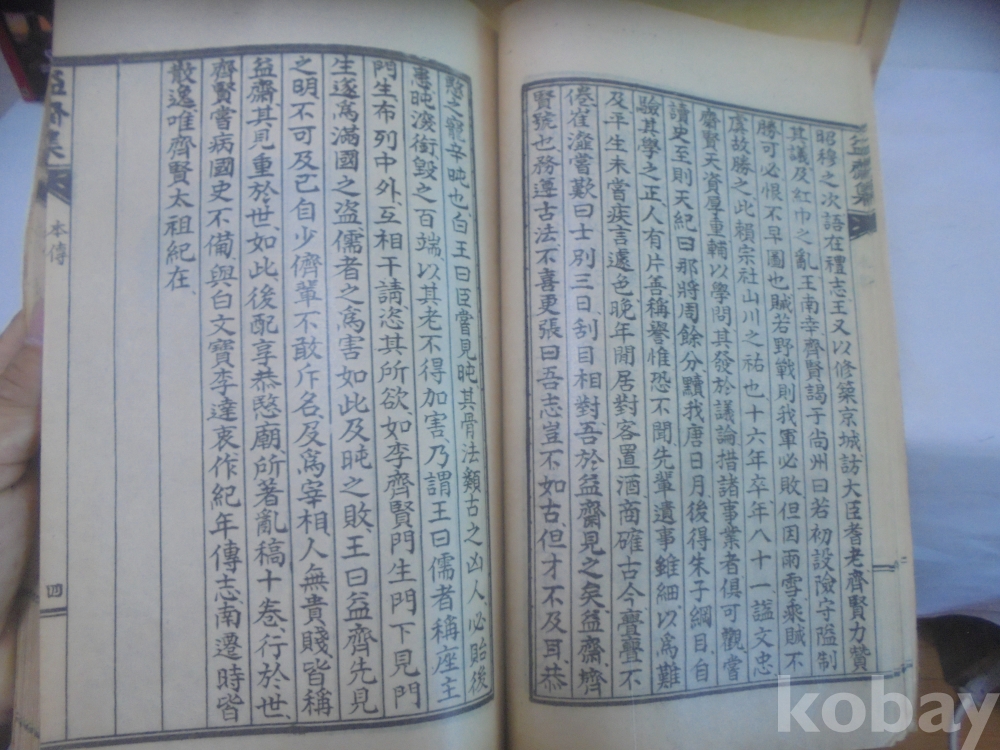 益齋集
昭穆之次語在禮志王又以修築京城訪大臣耆老齊賢力贊
其議及紅巾之亂王南幸齊賢謁于尙州曰若初設險守隘制
勝可必恨不早圖也賊若野戰則我軍必敗但因雨雪乘賊不
虞故勝之此賴宗社山川之祐也十六年卒年八十一諡文忠
齊賢天資厚重輔以學問其發於議論措諸事業者俱可觀嘗
讀史至則天紀曰那將周餘分黷我唐日月後得朱子綱目自
驗其學之正人有片善稱譽惟恐不聞先輩遺事雖細以爲難
及平生未嘗疾言遽色晩年閒居對客置酒商確古今亹亹不
倦崔瀣嘗歎曰士別三日刮目相對吾於益齋見之矣益齋齊
賢號也務遵古法不喜更張曰吾志豈不如古但才不及耳恭
愍之寵辛旽也白王曰臣嘗見旽其骨法類古之凶人必貽後
患旽深銜毁之百端以其老不得加害乃謂王曰儒者稱座主
門生布列中外互相干請恣其所欲如李齊賢門生門下見門
生遂爲滿國之盜儒者之爲害如此及旽之敗王曰益齋先見
之明不可及已自少儕輩不敢斥名及爲宰相人無貴賤皆稱
益齋其見重於世如此後配享恭愍廟所著亂稿十卷行於世
齊賢嘗病國史不備與白文寶李達衷作紀年傳志南遷時皆
散逸唯齊賢太祖紀在
益齋集
本傳
四
kobay